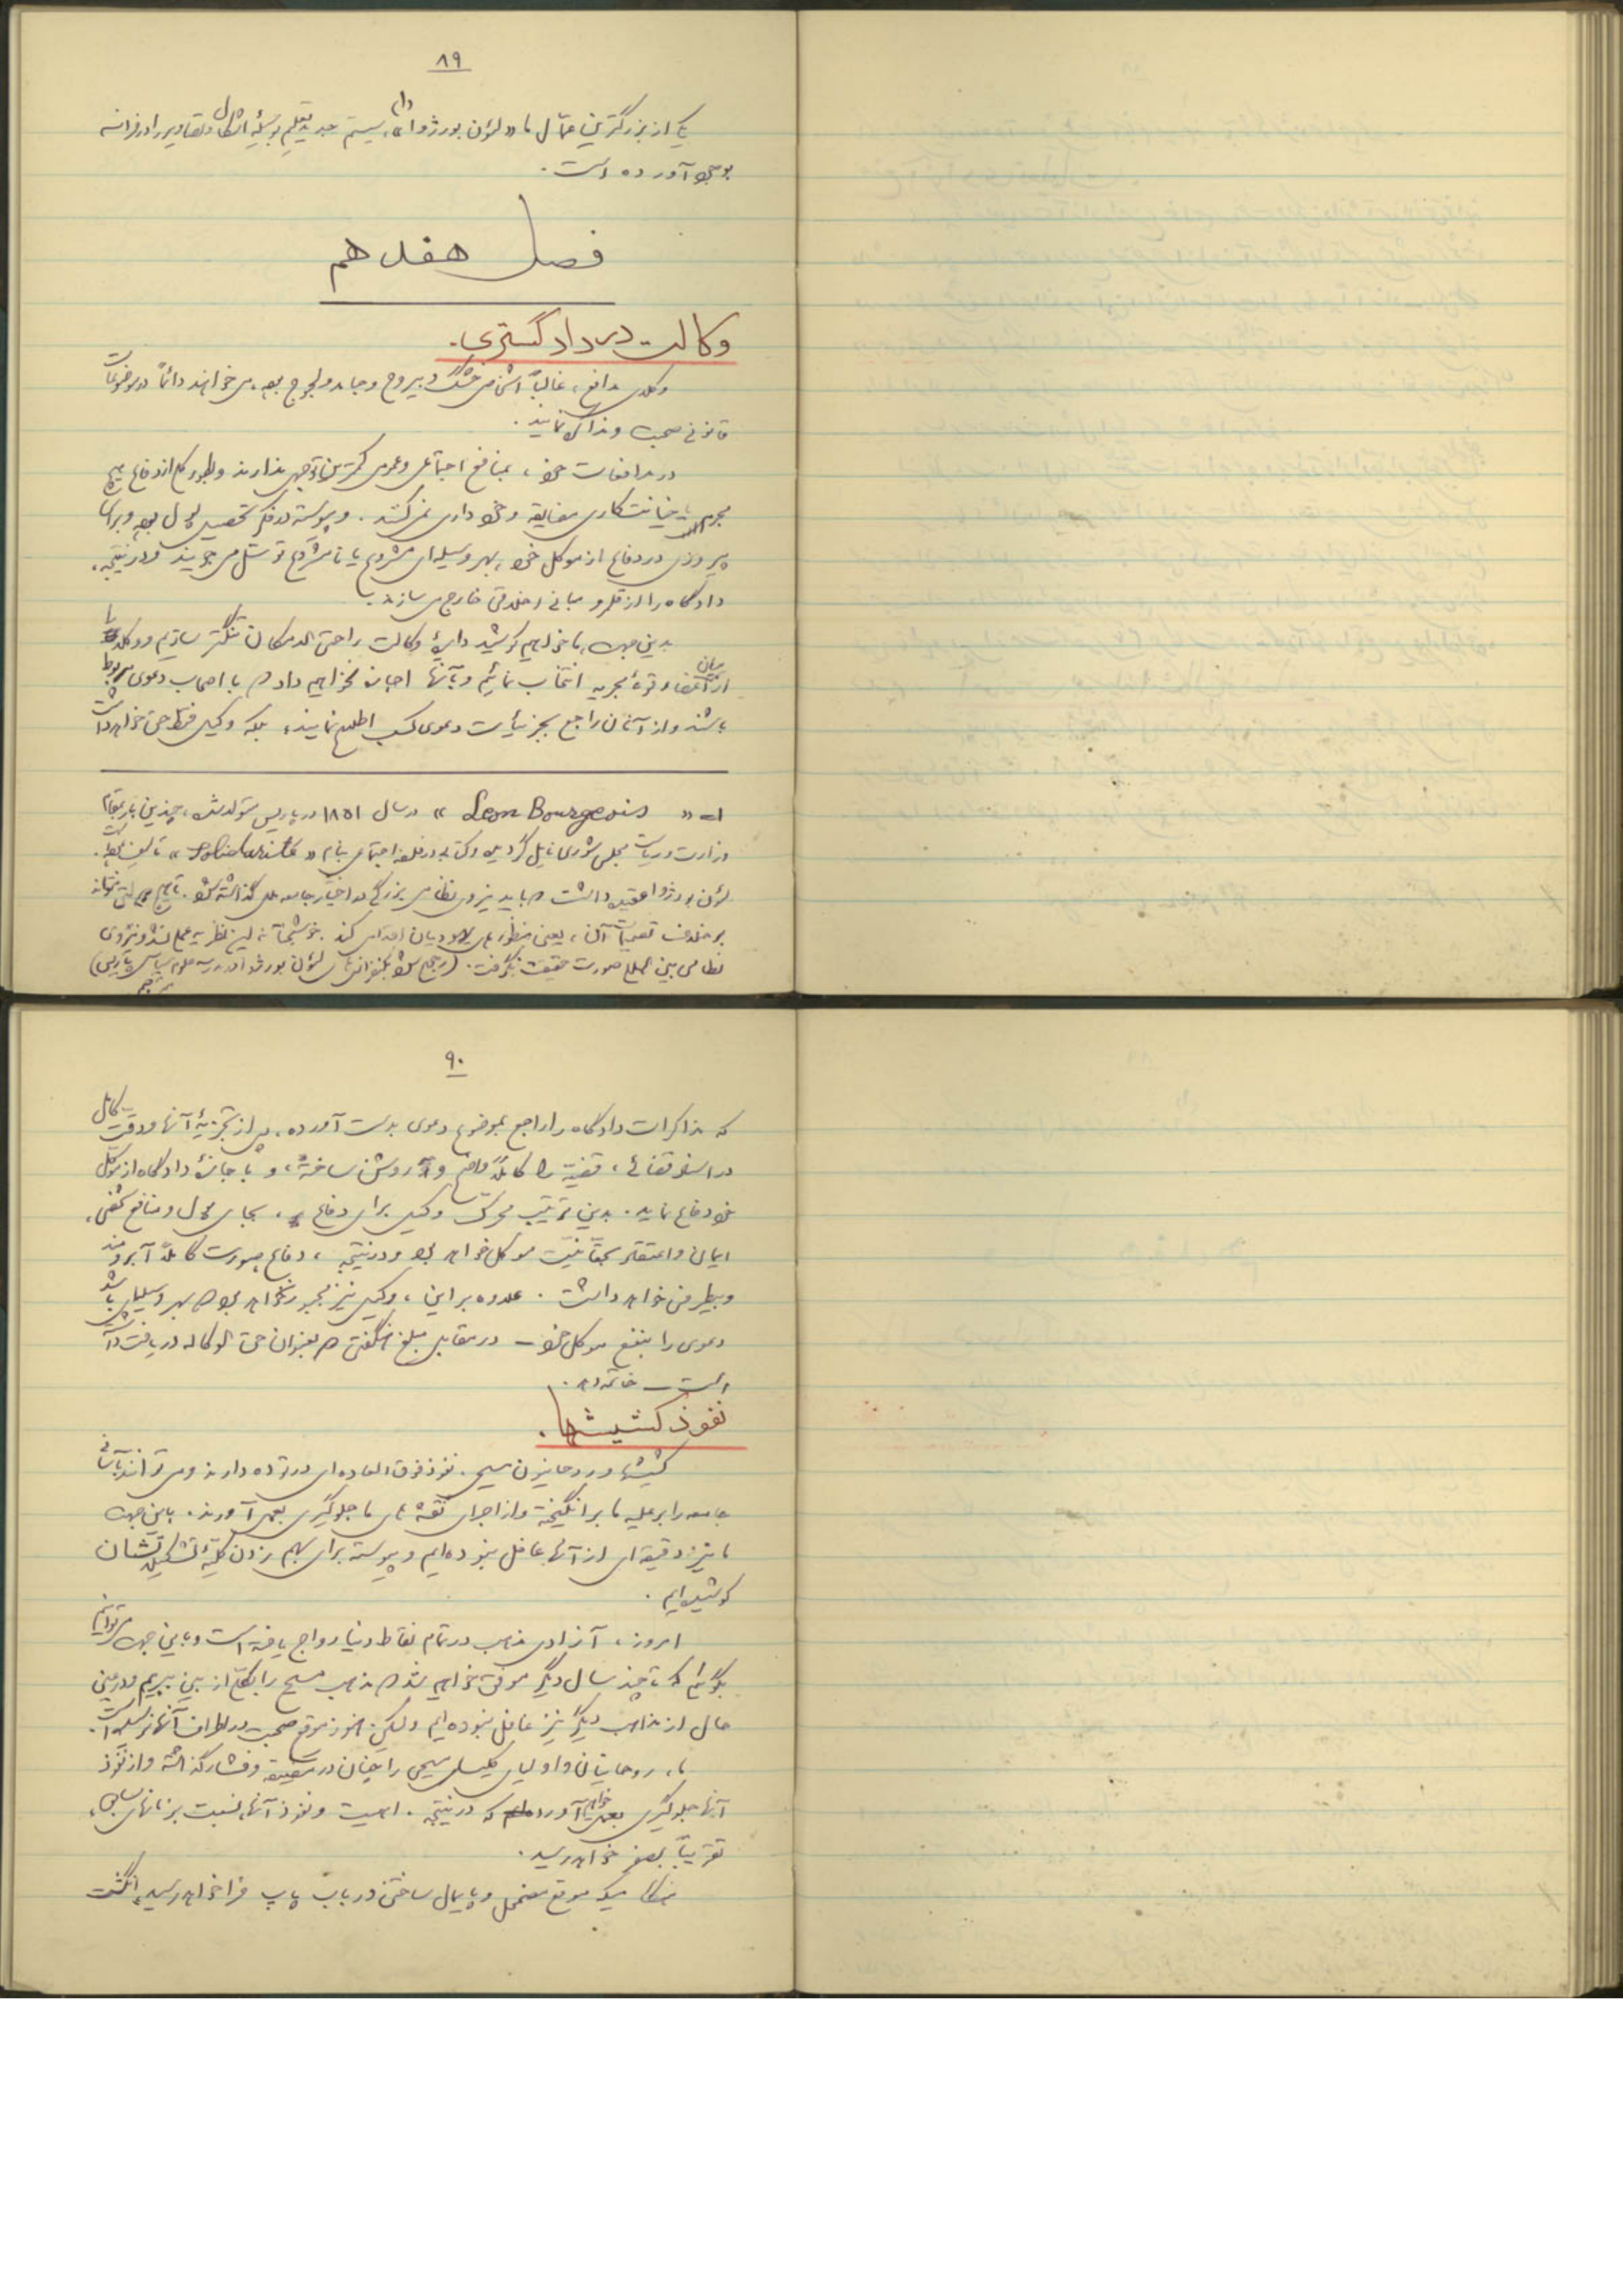 ۸۹
یکی از بزرگترین عمّال ما «لئون بورژوا»(۱)، سیستم جدید تعلیم بوسیلهٔ اشکال و تصاویر را در فرانسه
بوجود آورده است.
فصل هفدهم
وکالت در دادگستری.
وکلای مدافع، غالباً اشخاص خشک و بیروح و جامد و لجوج بوده، می‌خواهند دائماً در موضوعات
قانونی صحبت و مذاکره نمایند.
در مدافعات خود، بمنافع اجتماعی و عمومی کمترین توجهی ندارند و بطور کلی از دفاع هیچ
مجرم یا خیانتکاری مضایقه و خودداری نمی‌کنند. و پیوسته در فکر تحصیل پول بوده و برای
پیروزی در دفاع از موکل خود، بهر وسیله‌ای مشروع یا نامشروع توسّل می‌جویند و در نتیجه،
دادگاه را از قلمرو مبانی اخلاقی خارج می‌سازند.
بدین جهت، ما خواهیم کوشید دایرهٔ وکالت را حتی‌الامکان تنگتر سازیم و وکلا را
از میان اعضاء قوهٔ مجریه انتخاب نمائیم و بآنها اجازه نخواهیم داد که با اصحاب دعوی مربوط
باشند و از آنان راجع بجزئیات دعوی کسب اطلاع نمایند، بلکه وکیل فقط حق خواهد داشت
۱ـ « Leon Bourgeois » در سال ۱۸۵۱ در پاریس متولد شده، چندین بار بمقام
وزارت و ریاست مجلس شوری نایل گردیده و کتابی در فلسفه اجتماعی بنام « Solidarité » تألیف نموده است.
لئون بورژوا عقیده داشت که باید نیروی نظامی بزرگی در اختیار جامعه ملل گذاشته شود. تا هیچ ملتی نتواند
برخلاف تصمیمات آن، یعنی منظورهای یهودیان اقدامی کند. خوشبختانه این نظریه عملی نشد و نیروی
نظامی بین‌المللی صورت حقیقت نگرفت. (رجوع شود بکنفرانسهای لئون بورژوا در مدرسه علوم سیاسی پاریس)
مترجم
۹۰
که مذاکرات دادگاه را راجع بموضوع دعوی بدست آورده، پس از تجزیهٔ آنها و دقت کامل
در استنطاقات، قضیّه را کاملاً واضح و روشن ساخته، و با اجازهٔ دادگاه از موکل
خود دفاع نماید. بدین ترتیب محرّک وکیل برای دفاع، بجای پول و منافع شخصی،
ایمان و اعتقاد بحقّانیّت موکل خواهد بود و در نتیجه، دفاع صورت کاملاً آبرومند
و بیطرفی خواهد داشت. علاوه بر این، وکیل نیز مجبور نخواهد بود که بهر وسیله‌ای باشد
دعوی را بنفع موکل خود – در مقابل مبلغ هنگفتی که بعنوان حق الوکاله دریافت داشته
است – خاتمه دهد.
نفوذ کشیشها.
کشیشها و روحانیون مسیحی. نفوذ فوق‌العاده‌ای در توده دارند و می‌توانند بآسانی
جامعه را بر علیه ما برانگیخته و از اجرای نقشه‌های ما جلوگیری بعمل آورند. باین جهت
ما نیز دقیقه‌ای از آنها غافل نبوده‌ایم و پیوسته برای بهم زدن کلیّهٔ تشکیلاتشان
کوشیده‌ایم.
امروز، آزادی مذهب در تمام نقاط دنیا رواج یافته است و باین جهت می‌توانیم
بگوئیم که تا چند سال دیگر موفق خواهیم شد که مذهب مسیح را بکلّی از بین ببریم و در عین
حال از مذاهب دیگر نیز غافل نبوده‌ایم ولیکن هنوز موقع صحبت در اطراف آنها نرسیده است.
ما، روحانیان و اولیای کلیسای مسیحی را چنان در مضیقه و فشار گذاشته و از نفوذ
آنها جلوگیری بعمل خواهیم آورد که در نتیجه. اهمیت و نفوذ آنها، نسبت بزمانهای سابق،
تقریباً بصفر خواهد رسید.
هنگامیکه موقع مضمحل و پایمال ساختن دربار پاپ فرا خواهد رسید، انگشت